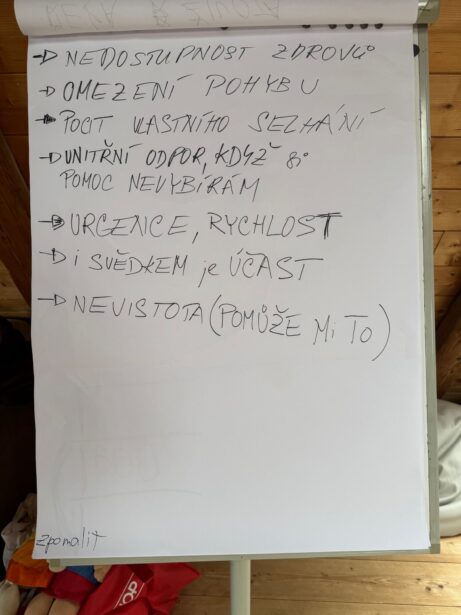 NEDOSTUPNOST ZDROJŮ
OMEZENÍ POHYBU
POCIT VLASTNÍHO SELHÁNÍ
UNITŘNÍ ODPOR, KDYŽ si
POMOC NEVYBÍRÁM
URGENCE, RYCHLOST
i SVĚDKEM je ÚČAST
NEVISTOTA (POMŮŽE Mi TO)
zpomalit